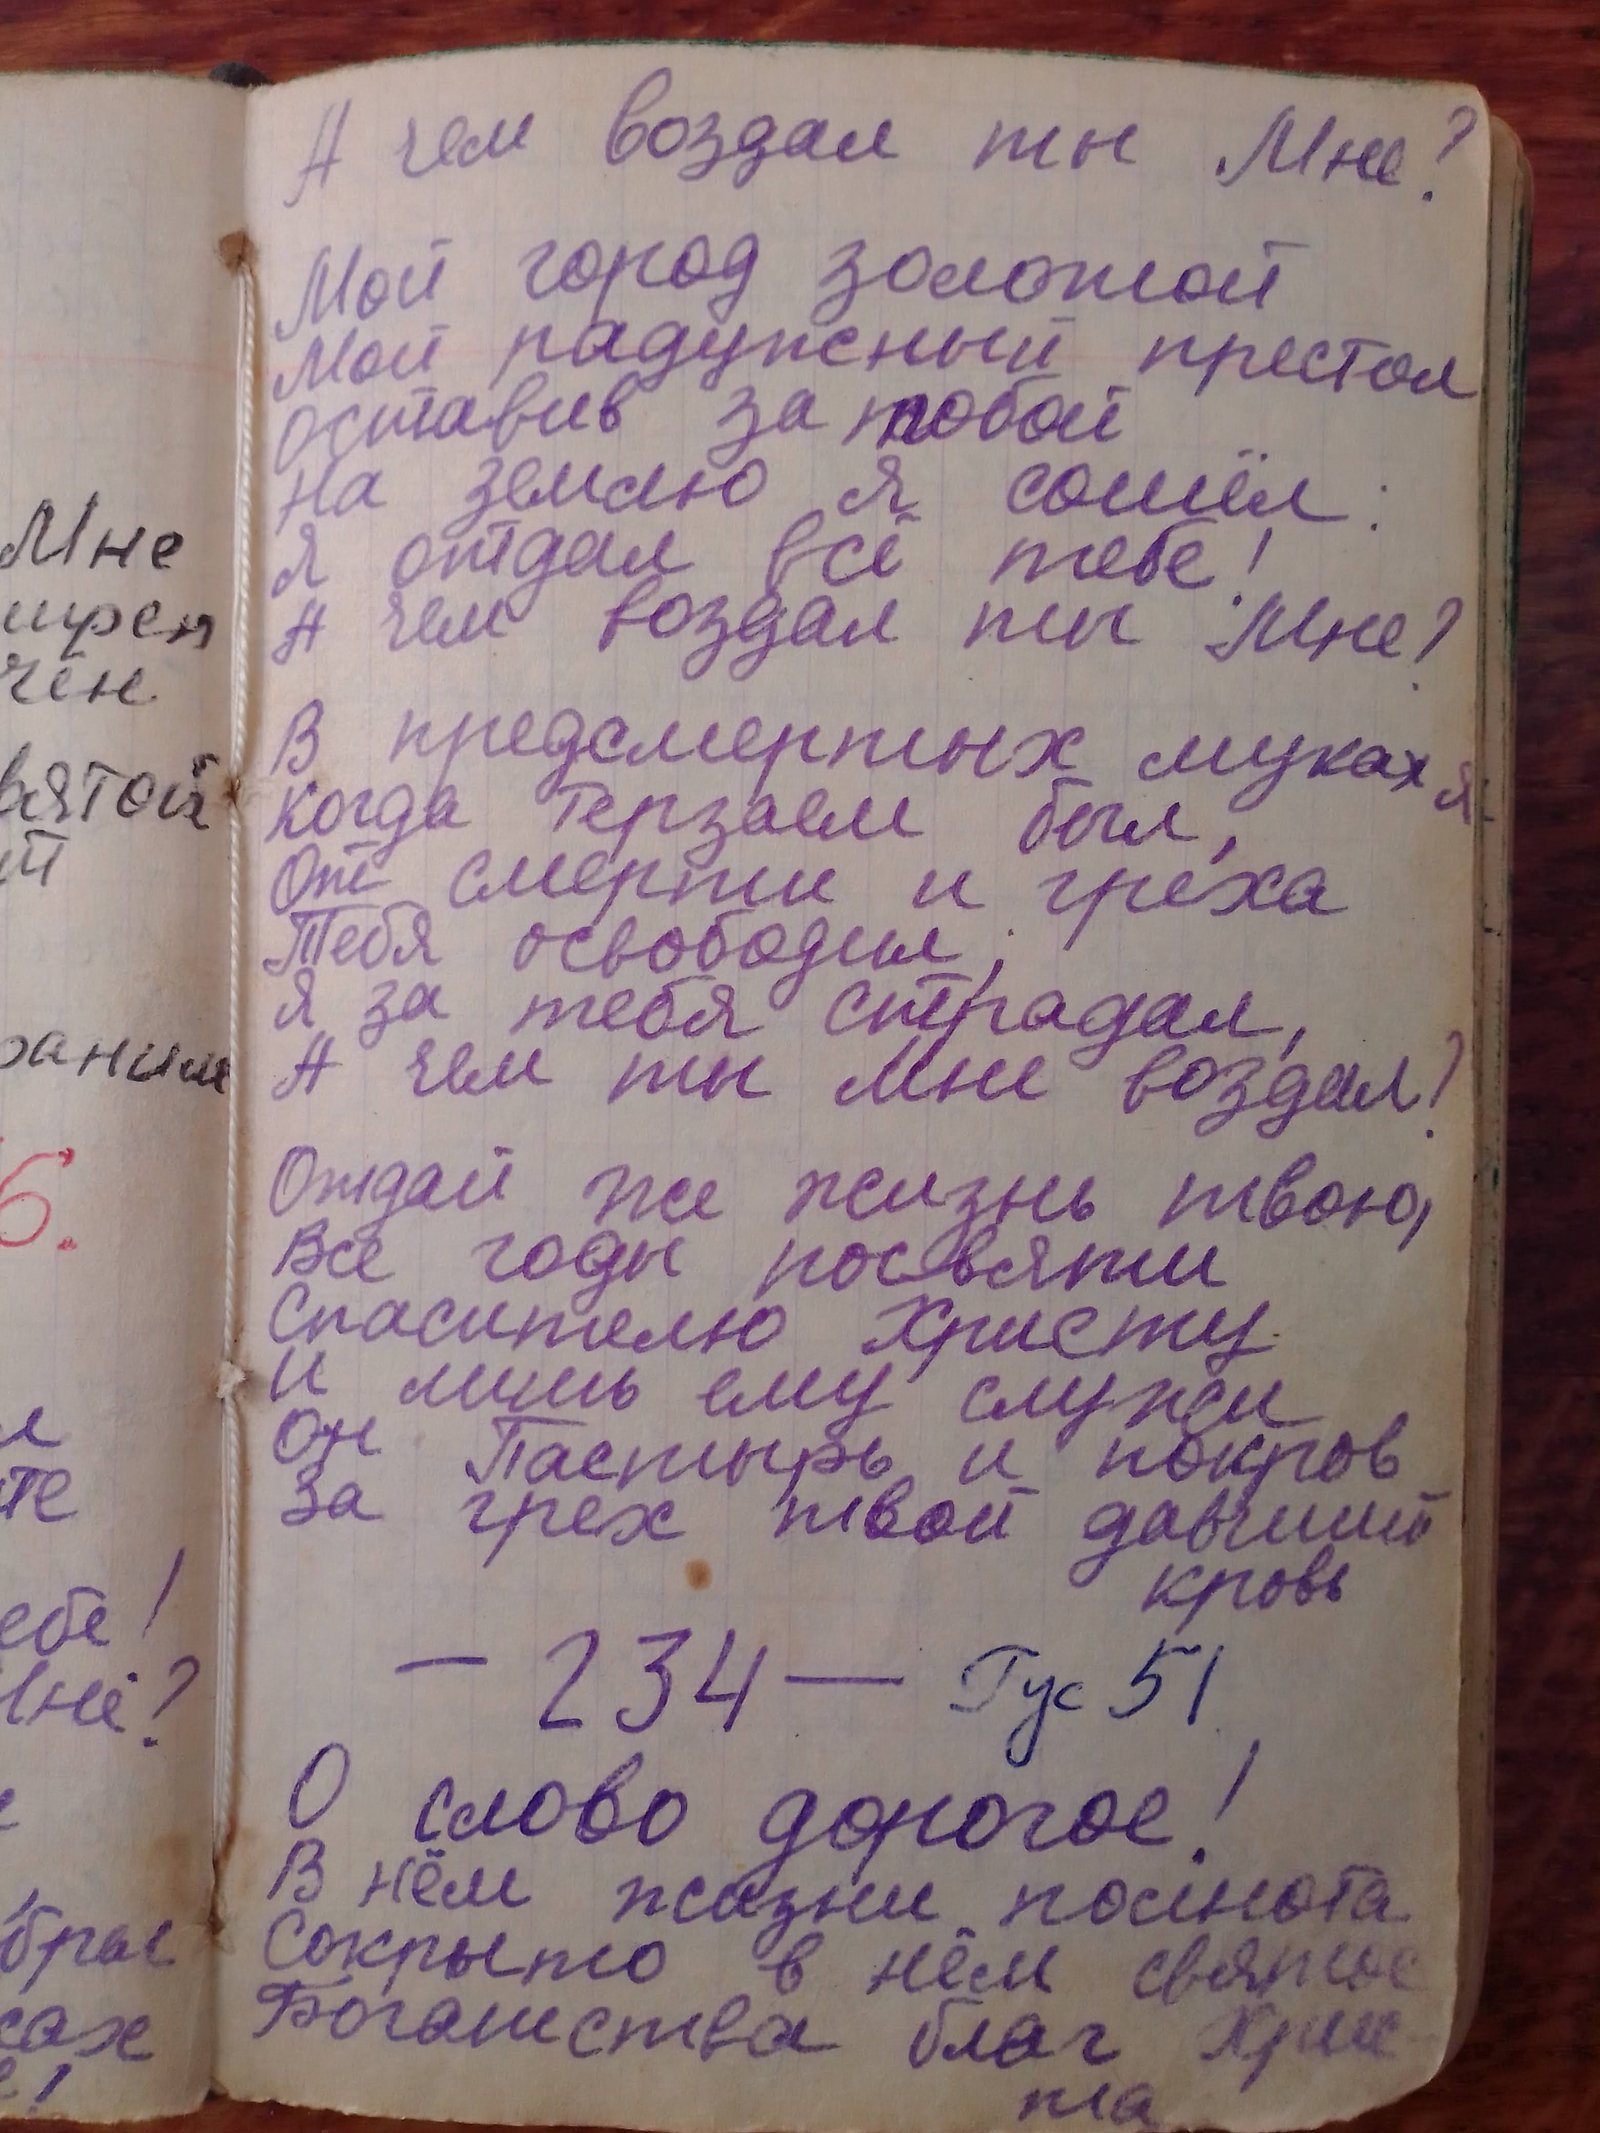 Мне
чен
вятой
т
6.
те
ебе!
Мне?
брал
А чем воздал ты Мне?
Мой город золотой
Мой радужный престол
оставив за тобой
на землю я сошёл:
Я отдал всё тебе!
А чем воздал ты Мне?
В предсмертых муках я
когда терзаем был,
От смерти и греха
Тебя освободил;
Я за тебя страдал,
А чем ты мне воздал?
Отдай же жизнь твою,
Все годы посвяти
Спасителю Христу
и лишь ему служи
Он Пастырь и покров
За грех твой давший
кровь
— 234 — Гус 51
О слово дорогое!
В нём жизни полнота
Сокрыто в нём святое
Богатства благ Хрис
та